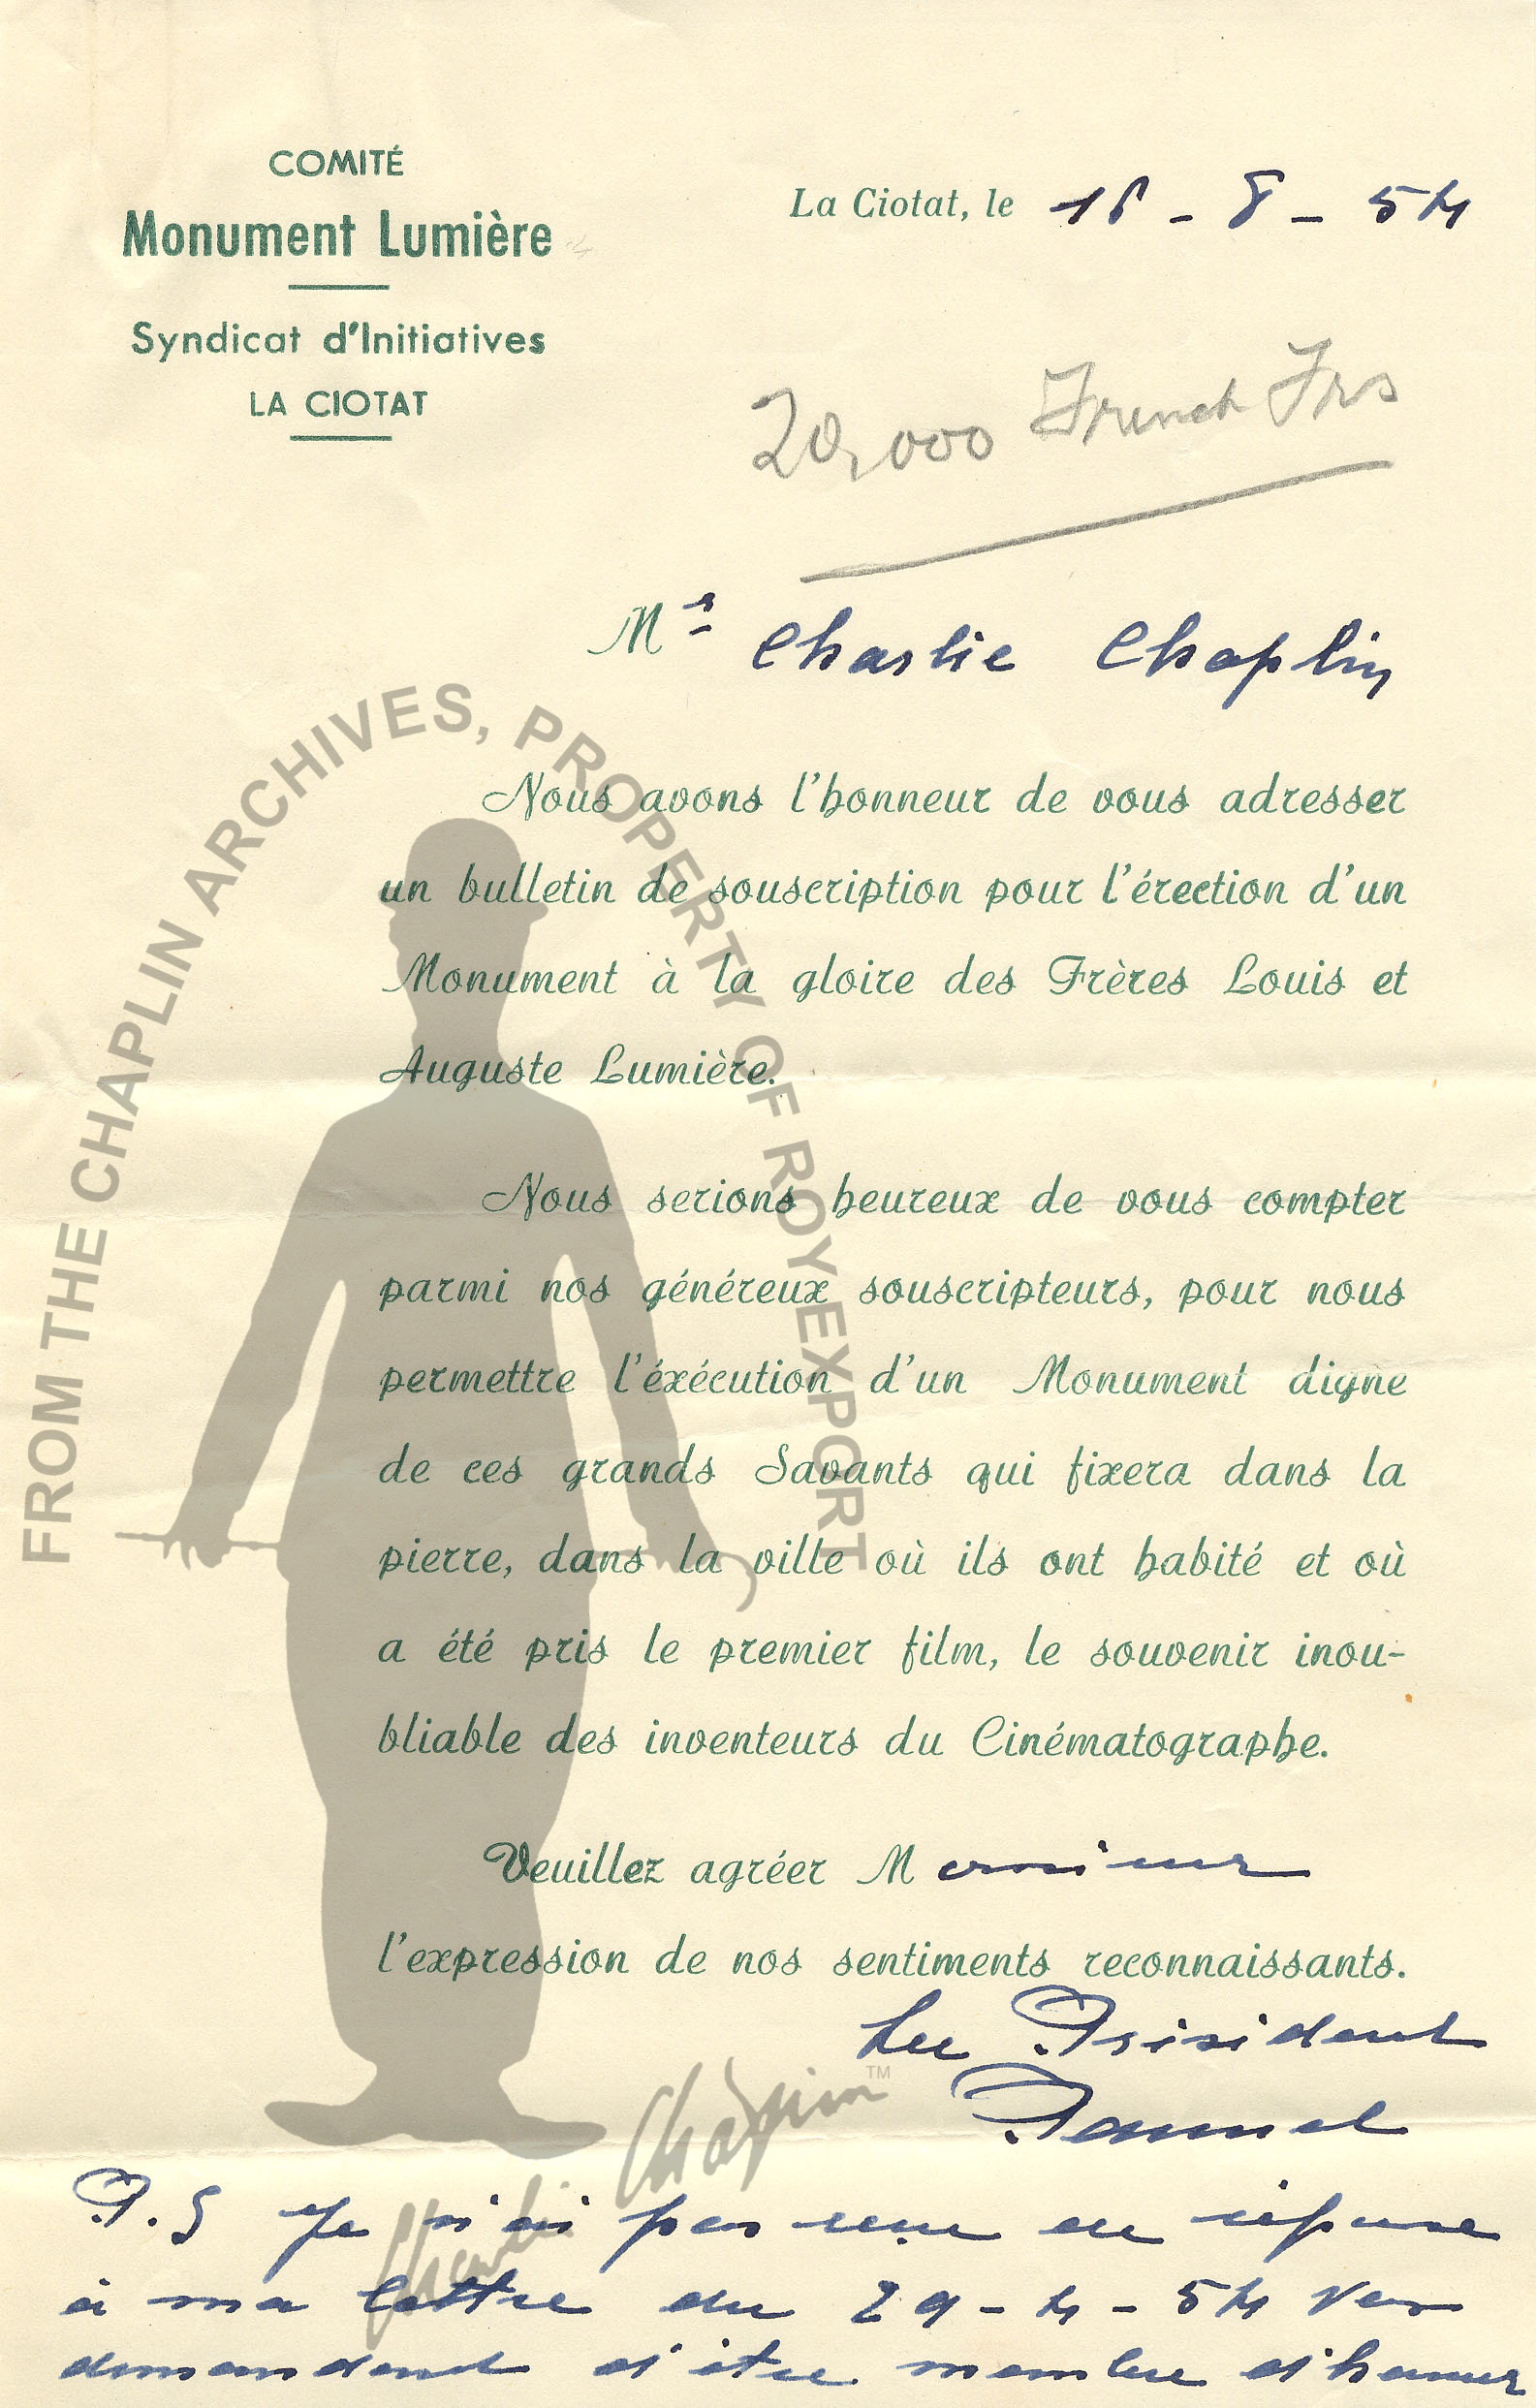 COMITÉ
Monument Lumière
Syndicat d'Initiatives
LA CIOTAT
La Ciotat, le 16 - 8 - 54
20,000 French Frs
Mr Charlie Chaplin
Nous avons l'honneur de vous adresser
un bulletin de souscription pour l'érection d'un
Monument à la gloire des Frères Louis et
Auguste Lumière.
Nous serions heureux de vous compter
parmi nos généreux souscripteurs, pour nous
permettre l'éxécution d'un Monument digne
de ces grands Savants qui fixera dans la
pierre, dans la ville où ils ont habité et où
a été pris le premier film, le souvenir inou-
bliable des inventeurs du Cinématographe.
Veuillez agréer Monsieur
l'expression de nos sentiments reconnaissants.
Le Président
P.S Je n'ai pas reçu de réponse
à ma lettre du 29-4-54 Vous
demandant d'être membre d'honneur
FROM THE CHAPLIN ARCHIVES, PROPERTY OF ROY EXPORT
Charlie Chaplin TM